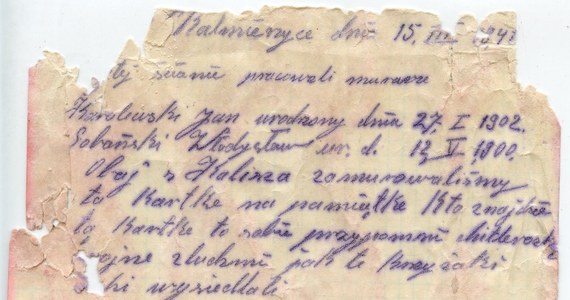 Kalmierzyce dnia 15. III 194
tej ścianie pracowali murarze
Karolewski Jan urodzony dnia 27, I 1902.
Sobański Władysław ur. d. 12, V 1900.
Obaj z Kalisza zamurowaliśmy
ta Kartke na pamiątke Kto znajdzie
ta Kartke to sobie przypomni
wojne z ludźmi jak te krzyżaki
wysiedlali